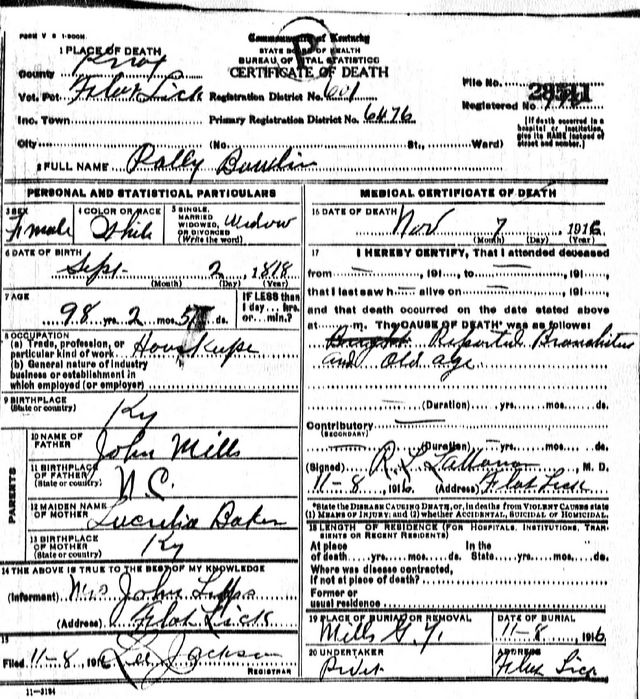 FORM V S 1-500M.
Commonwealth of Kentucky
STATE BOARD OF HEALTH
BUREAU OF VITAL STATISTICS
CERTIFICATE OF DEATH
1 PLACE OF DEATH
County Knox
Vot. Pct. Flat Lick Registration District No. 601
File No. 28541
Registered No.
Inc. Town Primary Registration District No. 6476
[If death occurred in a hospital or institution, give its NAME instead of street and number.]
City (No. St., Ward)
2 FULL NAME Polly Bowlin
PERSONAL AND STATISTICAL PARTICULARS
3 SEX Female
4 COLOR OR RACE White
5 SINGLE, MARRIED WIDOWED, OR DIVORCED (Write the word) Widow
6 DATE OF BIRTH
Sept 2, 1818
(Month) (Day) (Year)
7 AGE
98 yrs. 2 mos. 5 ds.
IF LESS than 1 day... hrs. or... min.?
8 OCCUPATION
(a) Trade, profession, or particular kind of work Houskeepe
(b) General nature of industry
business or establishment in
which employed (or employer)
9 BIRTHPLACE
(State or country) Ky
PARENTS
10 NAME OF FATHER John Mills
11 BIRTHPLACE OF FATHER (State or country) N.C.
12 MAIDEN NAME OF MOTHER Lucretia Baker
13 BIRTHPLACE OF MOTHER (State or country) Ky
14 THE ABOVE IS TRUE TO THE BEST OF MY KNOWLEDGE
(Informant) Mrs John Lipps
(Address) Flat Lick
15
Filed 11-8, 1916 Lee Jackson
REGISTRAR
11-3184
MEDICAL CERTIFICATE OF DEATH
16 DATE OF DEATH
Nov 7, 1916
(Month) (Day) (Year)
17 I HEREBY CERTIFY, That I attended deceased
from , 191 , to , 191 ,
that I last saw h alive on , 191 ,
and that death occurred on the date stated above
at m. The CAUSE OF DEATH* was as follows:
Reportid Bronchitus
and old age
(Duration) yrs. mos. ds.
Contributory
(SECONDARY)
(Duration) yrs. mos. ds.
(Signed) M. D.
11-8, 1916 (Address) Flat Lick
*State the DISEASE CAUSING DEATH, or, in deaths from VIOLENT CAUSES state
(1) MEANS OF INJURY; and (2) whether ACCIDENTAL, SUICIDAL or HOMICIDAL.
18 LENGTH OF RESIDENCE (FOR HOSPITALS, INSTITUTIONS, TRANSIENTS OR RECENT RESIDENTS)
At place of death yrs. mos. ds. In the State yrs. mos. ds.
Where was disease contracted,
if not at place of death?
Former or
usual residence
19 PLACE OF BURIAL OR REMOVAL
Mills G. Y.
DATE OF BURIAL
11-8, 1916
20 UNDERTAKER
Privet
ADDRESS
Flat Lick